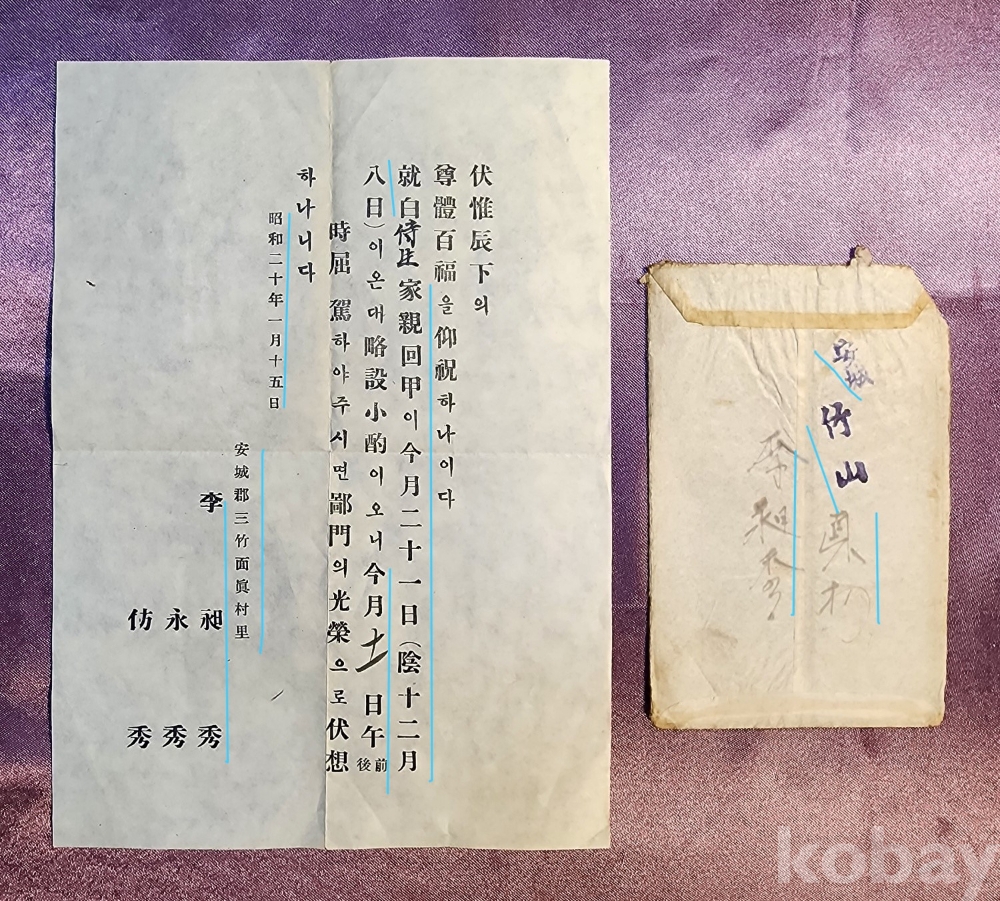 伏惟辰下의
尊體百福을仰祝하나이다
就白侍生家親回甲이今月二十一日(陰十二月
八日)이온대略設小酌이오니今月 日午前後
時屈 駕하야주시면鄙門의光榮으로伏想
하나니다
昭和二十年一月十五日
安城郡三竹面眞村里
李 昶秀
永秀
仿秀
安城
竹山
kobay